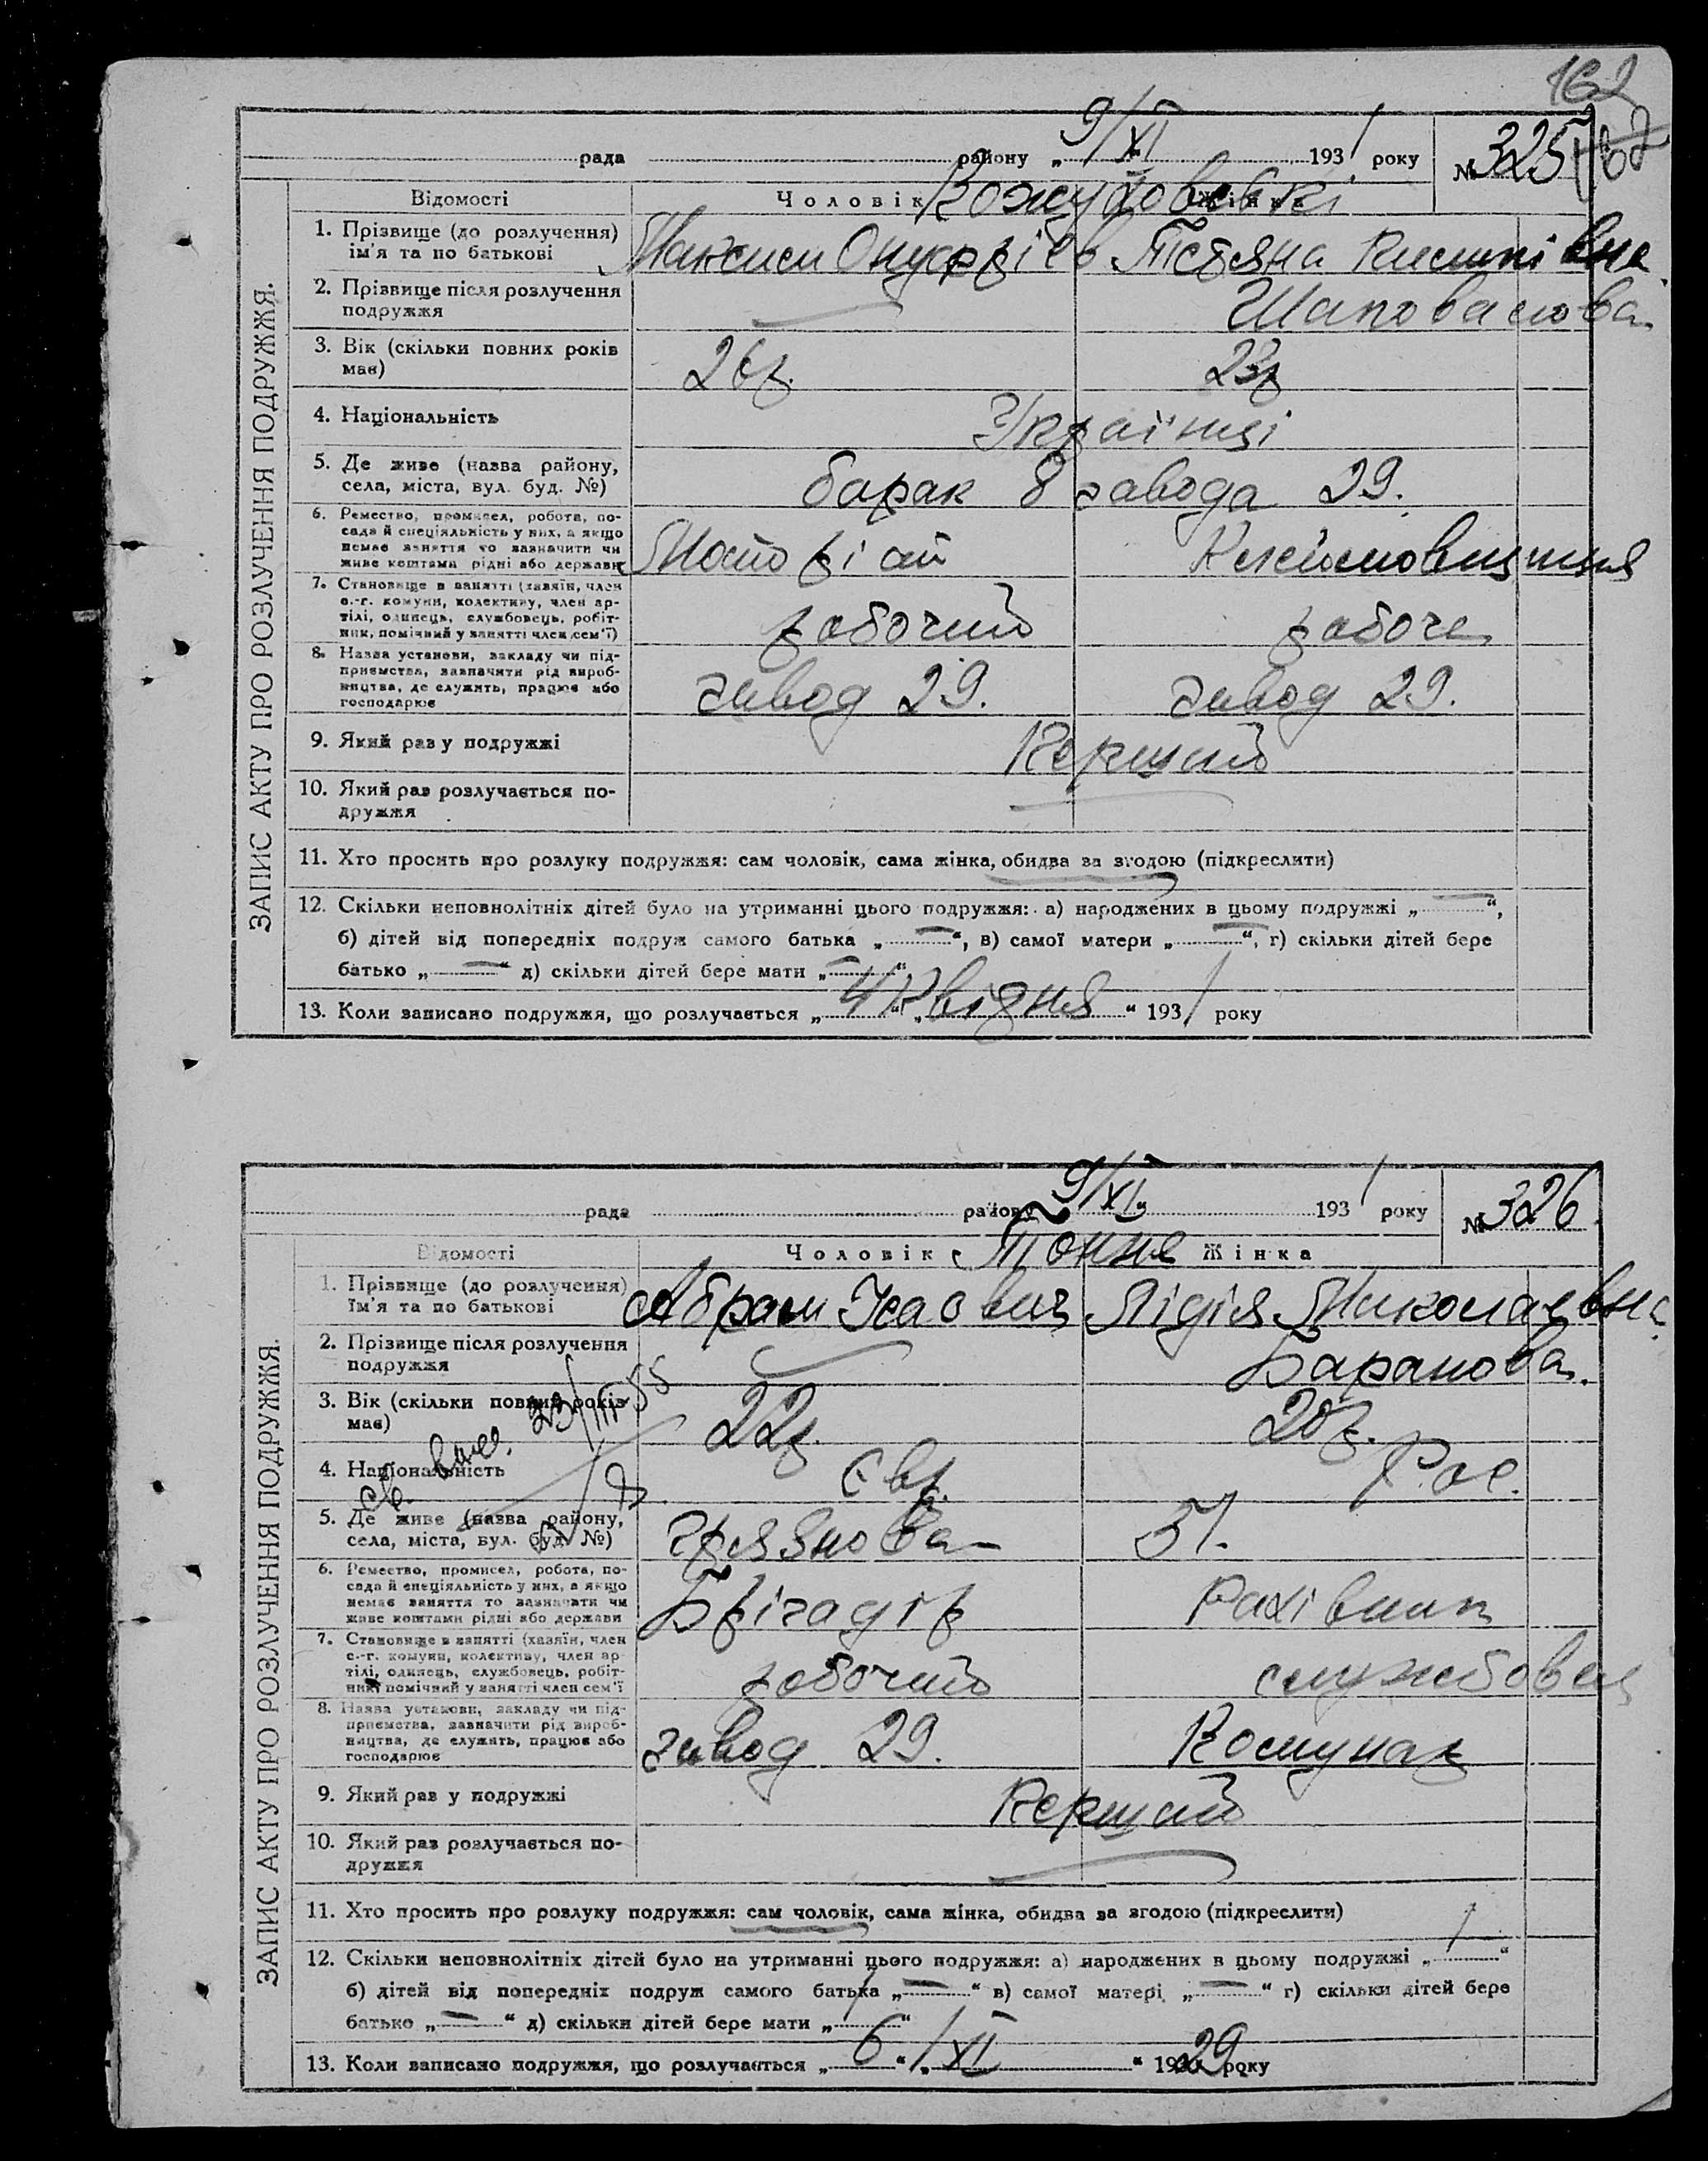 162
рада району „ 9/XI 1931 року № 325
Відомості Чоловік Жінка
1. Прізвище (до розлучення)
ім'я та по батькові
Максим Онуфріев Тетяна
2. Прізвище після розлучення
подружжя
Шаповалова
3. Вік (скільки повних років
має)
26р. 23р
4. Національність
Українці
5. Де живе (назва району,
села, міста, вул. буд. №)
барак 8 завода 29.
6. Ремество, промисел, робота, по-
сада й спеціяльність у них, а якщо
немає заняття то зазначити чи
живе коштами рідні або держави
7. Становище в занятті (хазяїн, член
с.-г. комуни, колективу, член ар-
тілі, одинець, службовець, робіт-
ник, помічний у занятті член сем'ї)
робочий робоча
8. Назва установи, закладу чи під-
приємства, зазначити рід вироб-
ництва, де служить, працює або
господарює
завод 29. завод 29.
9. Який раз у подружжі
Перший
10. Який раз розлучається по-
дружжя
11. Хто просить про розлуку подружжя: сам чоловік, сама жінка, обидва за згодою (підкреслити)
12. Скільки неповнолітніх дітей було на утриманні цього подружжя: а) народжених в цьому подружжі „ — “,
б) дітей від попередніх подруж самого батька „ — “, в) самої матери „ — “, г) скільки дітей бере
батько „ — “ д) скільки дітей бере мати „ — “
13. Коли записано подружжя, що розлучається „ 4 “ „ Квідня “ 1931 року
ЗАПИС АКТУ ПРО РОЗЛУЧЕННЯ ПОДРУЖЖЯ.
рада району 9/XI 1931 року № 326.
Відомості Чоловік Жінка
1. Прізвище (до розлучення)
Ім'я та по батькові
Абрам Ісаович Лідія Миколаевна
2. Прізвище після розлучення
подружжя
Баранова.
3. Вік (скільки повних років
має)
22р. 20р.
4. Національність
Євр. Рос.
5. Де живе (назва району,
села, міста, вул. буд. №)
Грязнова 51.
6. Ремество, промисел, робота, по-
сада й спеціяльність у них, а якщо
немає заняття то зазначати чи
живе коштами рідні або держави
Брігадір Рахівник
7. Становище в занятті (хазяїн, член
с.-г. комуни, колективу, член ар-
тілі, одинець, службовець, робіт-
ник помічний у занятті член сем'ї
робочий службовец
8. Назва установи, закладу чи під-
приємства, зазначити рід вироб-
ництва, де служить, працює або
господарює
завод 29. Комунар
9. Який раз у подружжі
Перший
10. Який раз розлучається по-
дружжя
11. Хто просить про розлуку подружжя: сам чоловік, сама жінка, обидва за згодою (підкреслити)
12. Скільки неповнолітніх дітей було на утриманні цього подружжя: а) народжених в цьому подружжі „ 1 “
б) дітей від попередніх подруж самого батька „ — “ в) самої матері „ — “ г) скільки дітей бере
батько „ — “ д) скільки дітей бере мати „ 1 “
13. Коли записано подружжя, що розлучається „ 6 “ „ XI “ 1929 року
ЗАПИС АКТУ ПРО РОЗЛУЧЕННЯ ПОДРУЖЖЯ.